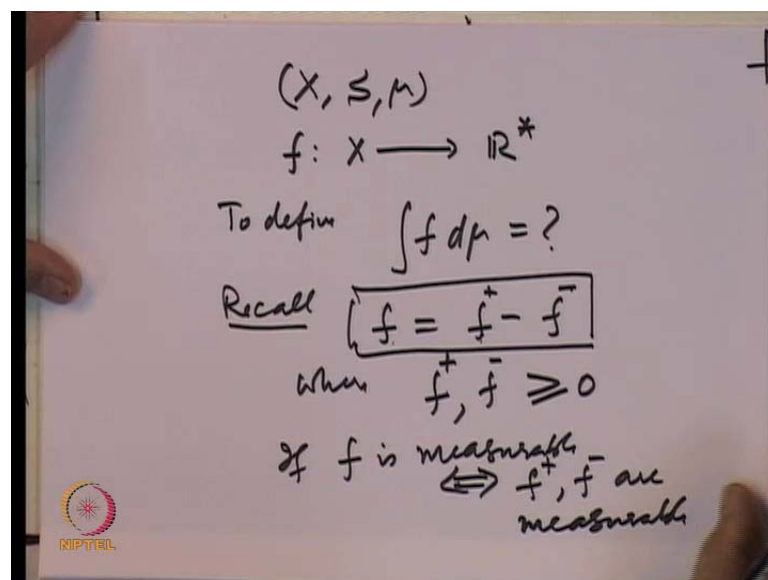 (X, S, μ)
f: X ⟶ ℝ*
To define ∫ f dμ = ?
Recall f = f⁺ - f⁻
when f⁺, f⁻ ≥ 0
If f is measurable
⟺ f⁺, f⁻ are
measurable
NPTEL